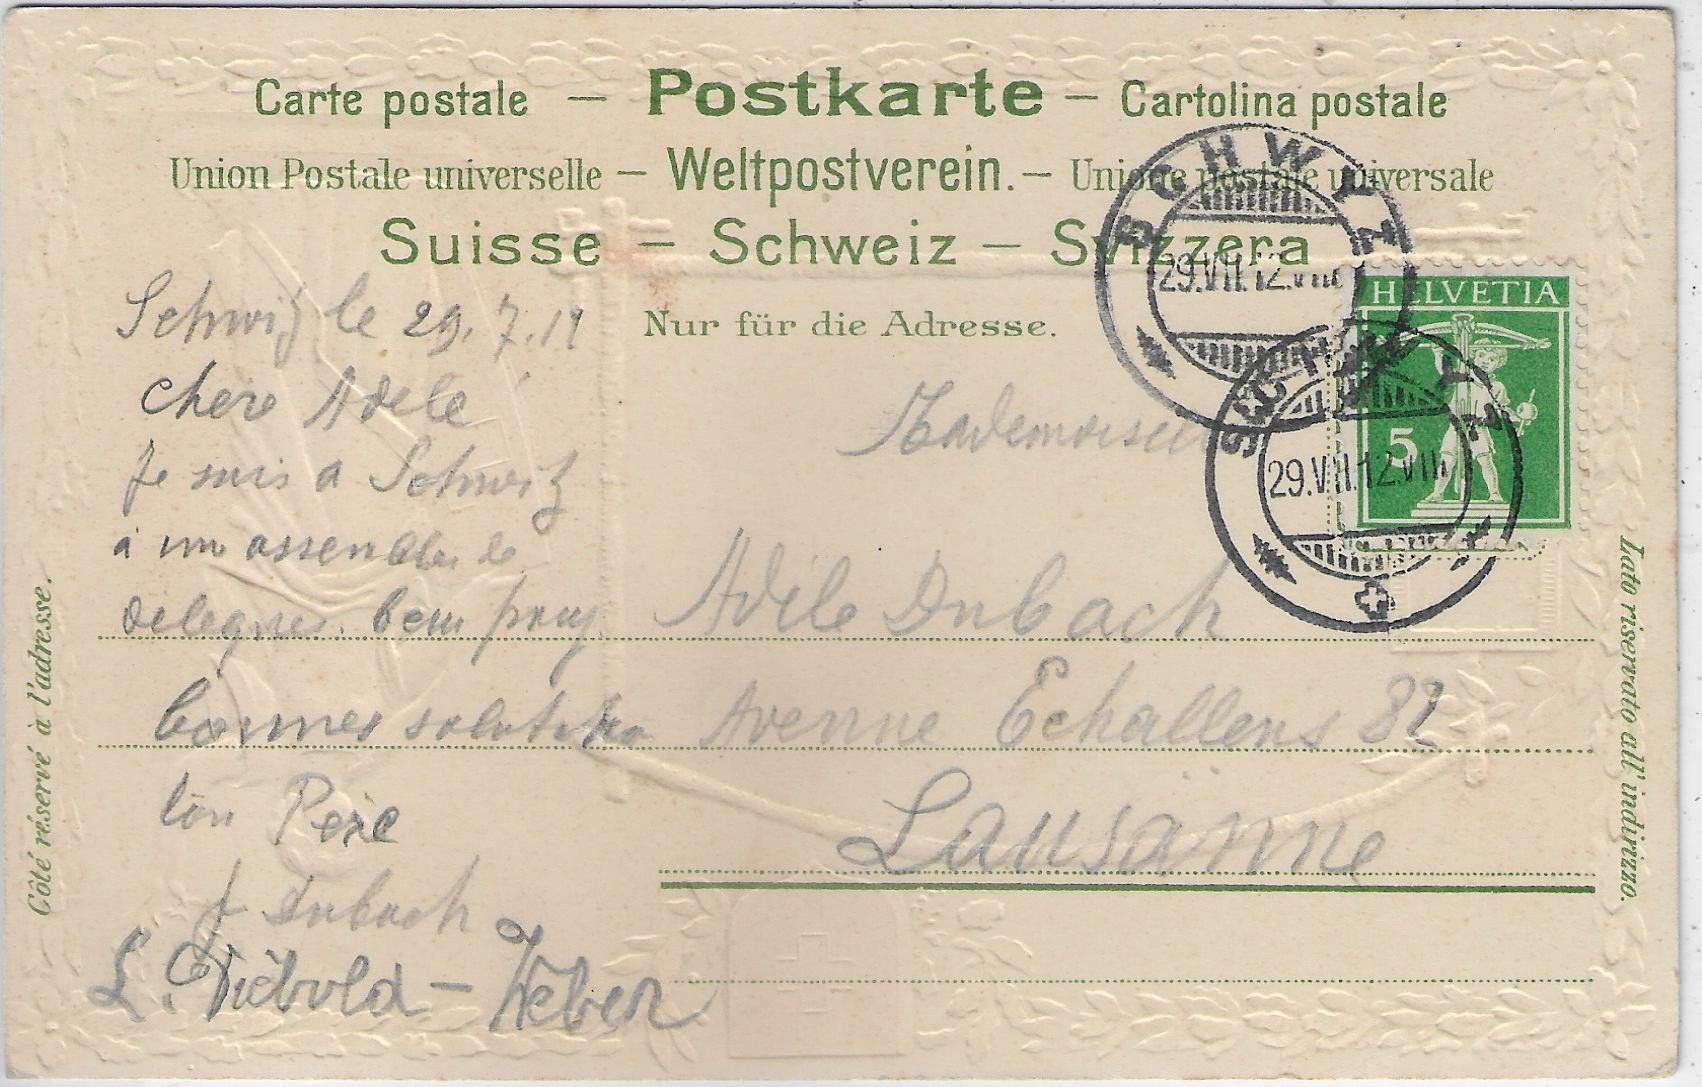 Carte postale — Postkarte — Cartolina postale
Union Postale universelle — Weltpostverein. — Unione postale universale
Suisse — Schweiz — Svizzera
Nur für die Adresse.
SCHWYZ
29.VII.12.VIII
HELVETIA
5
SCHWYZ
29.VII.12.VIII
Côté réservé à l'adresse.
Lato riservato all'indirizzo.
Schwiz le 29.7.12
chere Adele
Je suis a Schweiz
a une assemblee de
delegues. beau pay
bonnes salutation
ton Pere
f Dubach
L. Diebold – Weber
Mademoiselle
Adele Dubach
Avenue Echallens 82
Lausanne